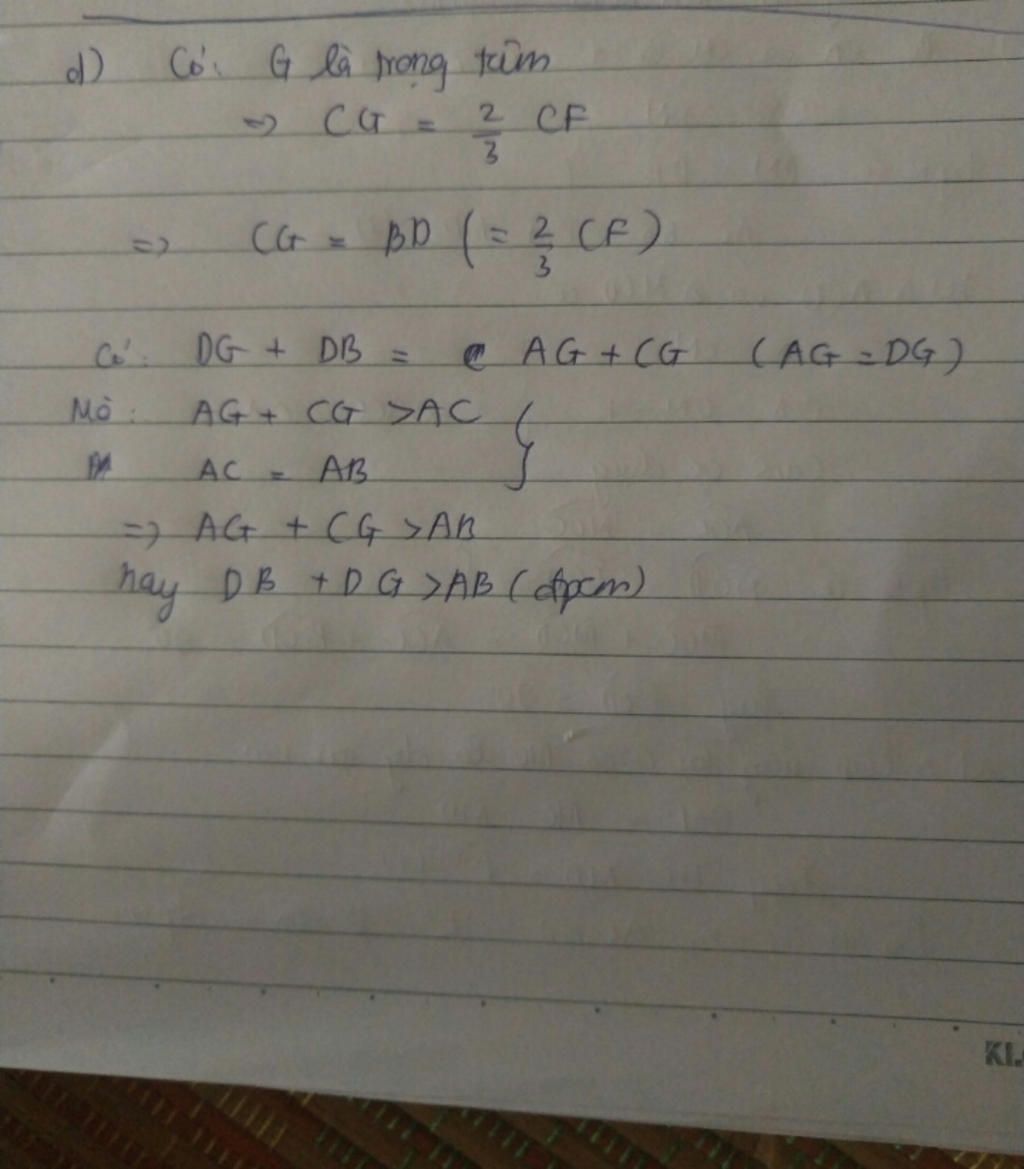 d) Có: G là trọng tâm
=> CG = 2/3 CF
=> CG = BD (= 2/3 CF)
Có: DG + DB = AG + CG (AG = DG)
Mà: AG + CG > AC }
AC = AB
=> AG + CG > AB
hay DB + DG > AB (đpcm)